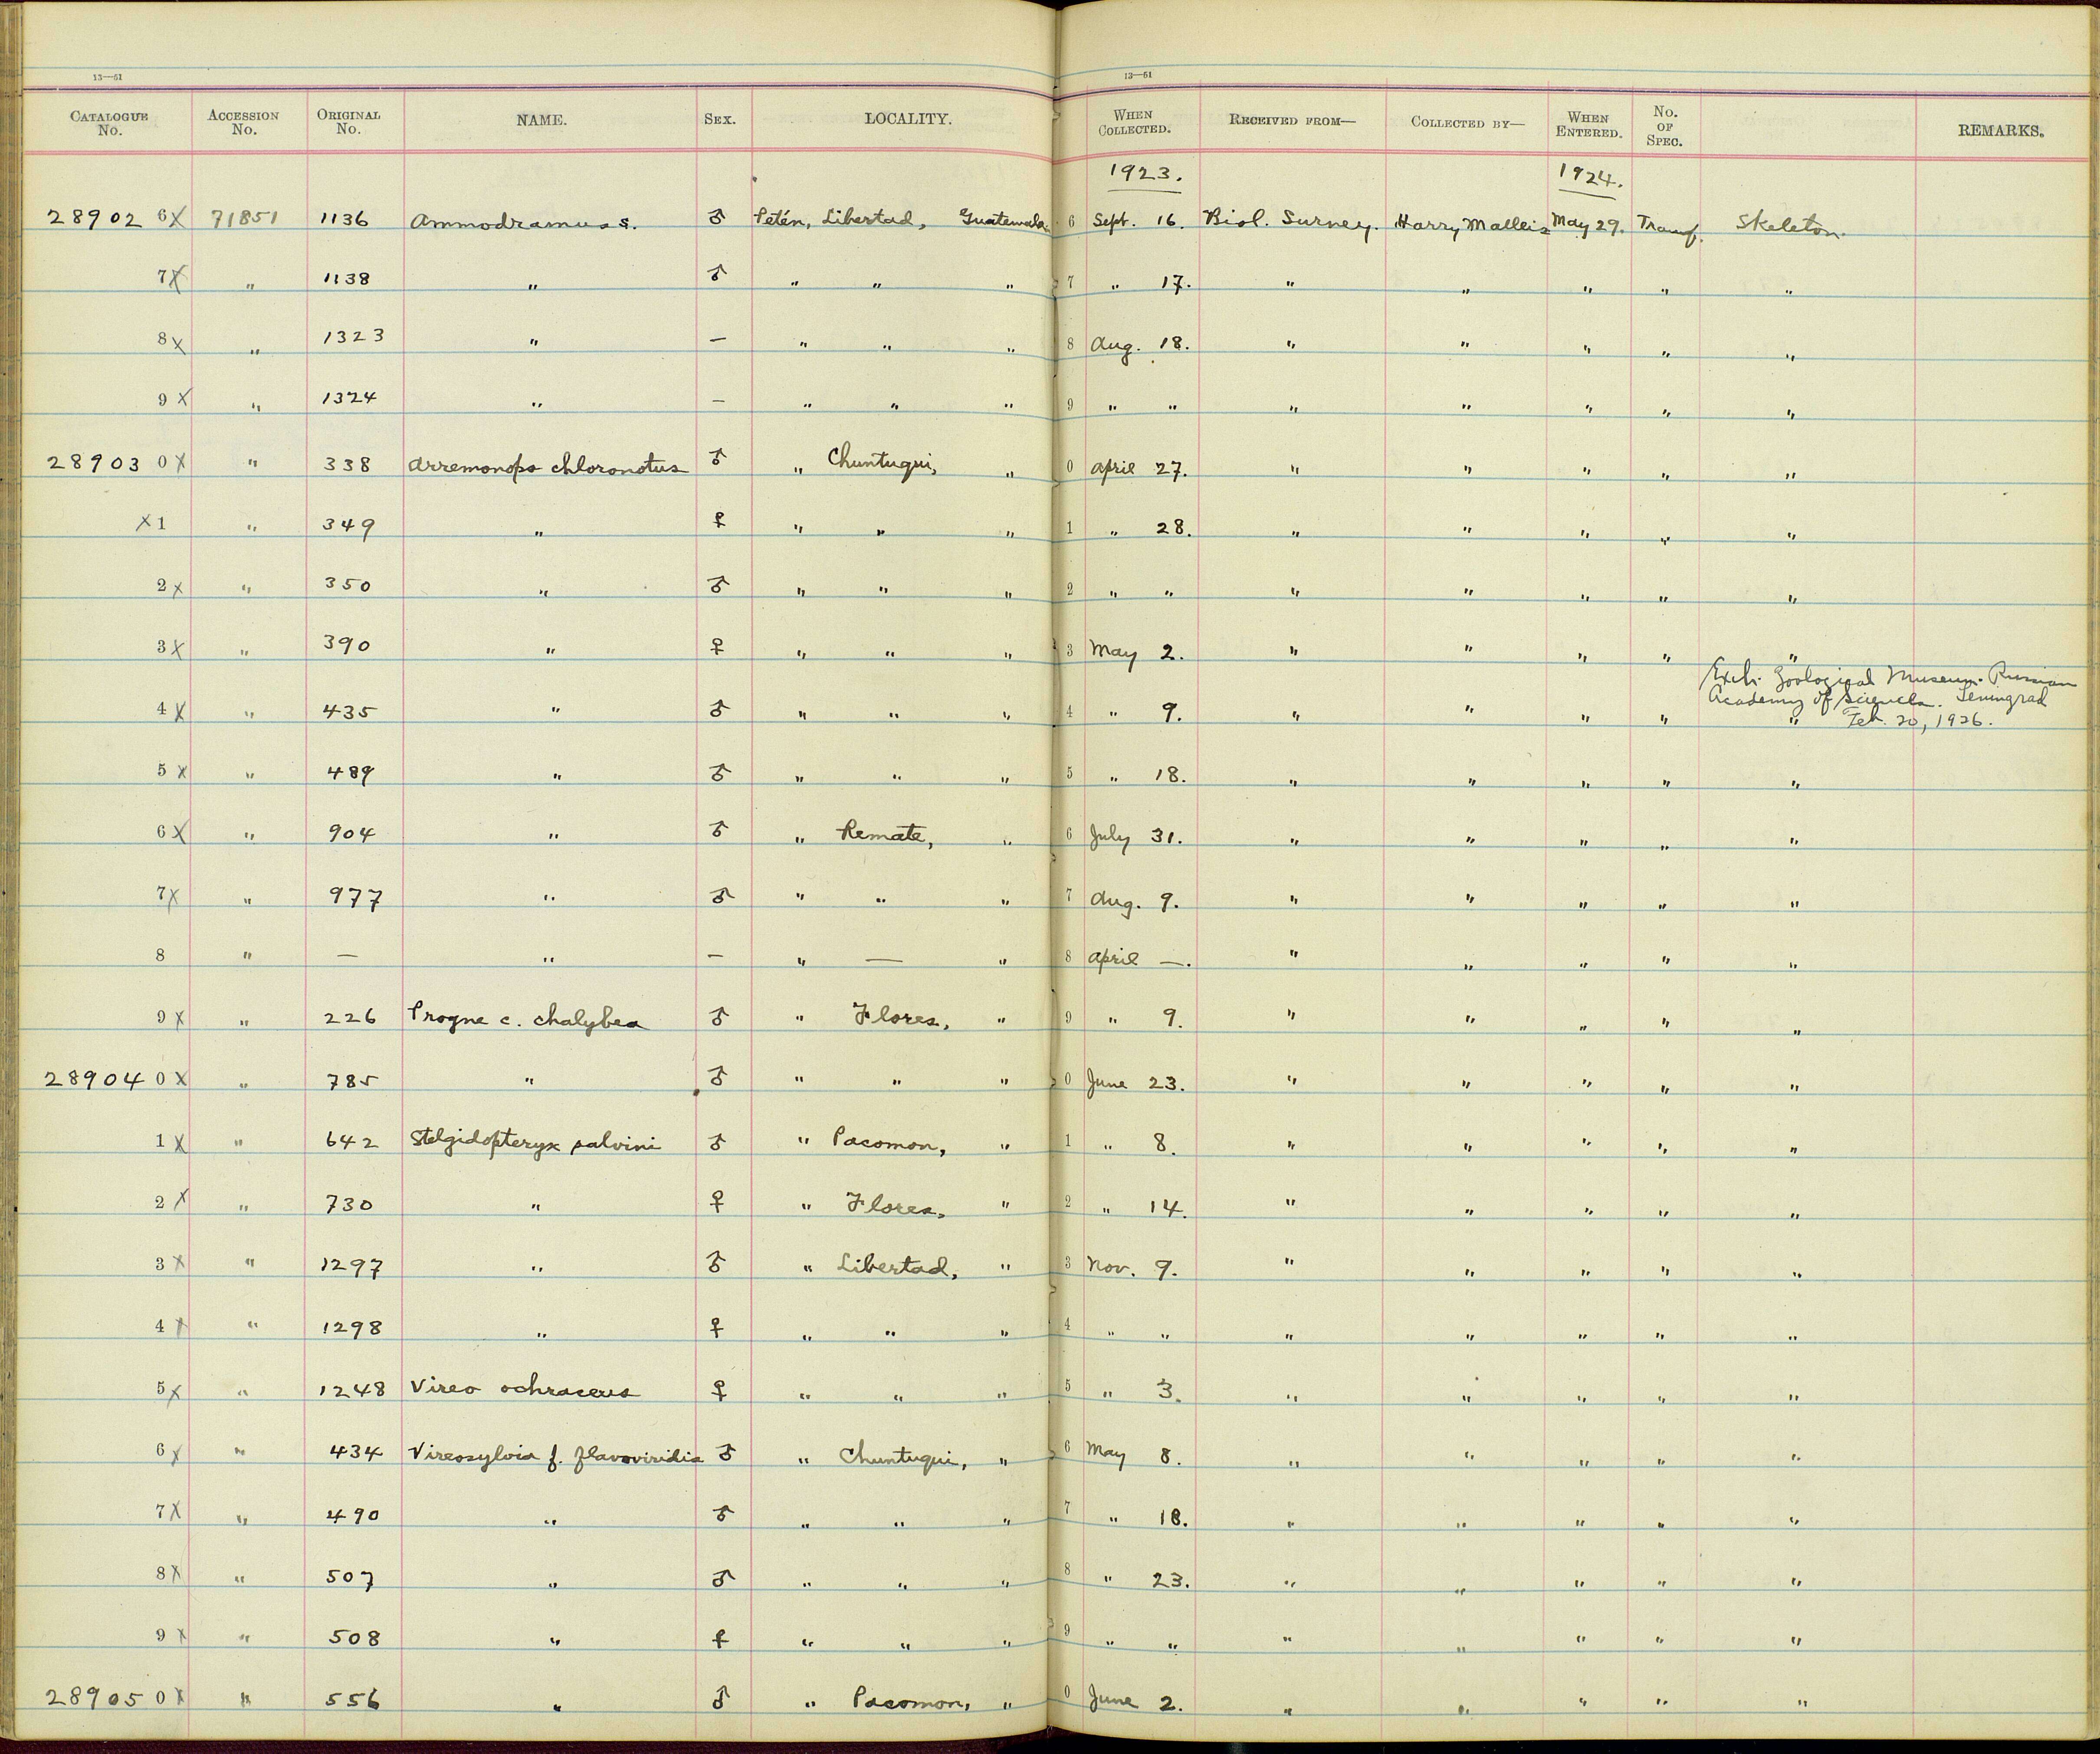 13—61 13—61
CATALOGUE No. ACCESSION No. ORIGINAL No. NAME. SEX. LOCALITY. WHEN COLLECTED. RECEIVED FROM— COLLECTED BY— WHEN ENTERED. No. OF SPEC. REMARKS.
1923. 1924.
28902 6 X 71851 1136 Ammodramus s. ♂ Petén, Libertad, Guatemala 6 Sept. 16. Biol. Survey. Harry Malleis May 29. Transf. Skeleton.
7 X " 1138 " ♂ " " " 7 " 17. " " " " "
8 X " 1323 " — " " " 8 Aug. 18. " " " " "
9 X " 1324 " — " " " 9 " " " " " " "
28903 0 X " 338 Arremonops chloronotus ♂ " Chuntuqui, " 0 April 27. " " " " "
X 1 " 349 " ♀ " " " 1 " 28. " " " " "
2 X " 350 " ♂ " " " 2 " " " " " " "
3 X " 390 " ♀ " " " 3 May 2. " " " " "
Exch. Zoological Museum. Russian
Academy of Sciences. Leningrad
4 X " 435 " ♂ " " " 4 " 9. " " " " " Feb. 20, 1926.
5 X " 489 " ♂ " " " 5 " 18. " " " " "
6 X " 904 " ♂ " Remate, " 6 July 31. " " " " "
7 X " 977 " ♂ " " " 7 Aug. 9. " " " " "
8 " — " — " — " 8 April —. " " " " "
9 X " 226 Progne c. chalybea ♂ " Flores, " 9 " 9. " " " " "
28904 0 X " 785 " ♂ " " " 0 June 23. " " " " "
1 X " 642 Stelgidopteryx salvini ♂ " Pacomon, " 1 " 8. " " " " "
2 X " 730 " ♀ " Flores, " 2 " 14. " " " " "
3 X " 1297 " ♂ " Libertad, " 3 Nov. 9. " " " " "
4 X " 1298 " ♀ " " " 4 " " " " " " "
5 X " 1248 Vireo ochraceus ♀ " " " 5 " 3. " " " " "
6 X " 434 Vireosylvia f. flavoviridis ♂ " Chuntuqui, " 6 May 8. " " " " "
7 X " 490 " ♂ " " " 7 " 18. " " " " "
8 X " 507 " ♂ " " " 8 " 23. " " " " "
9 X " 508 " ♀ " " " 9 " " " " " " "
28905 0 X " 556 " ♂ " Pacomon, " 0 June 2. " " " " "